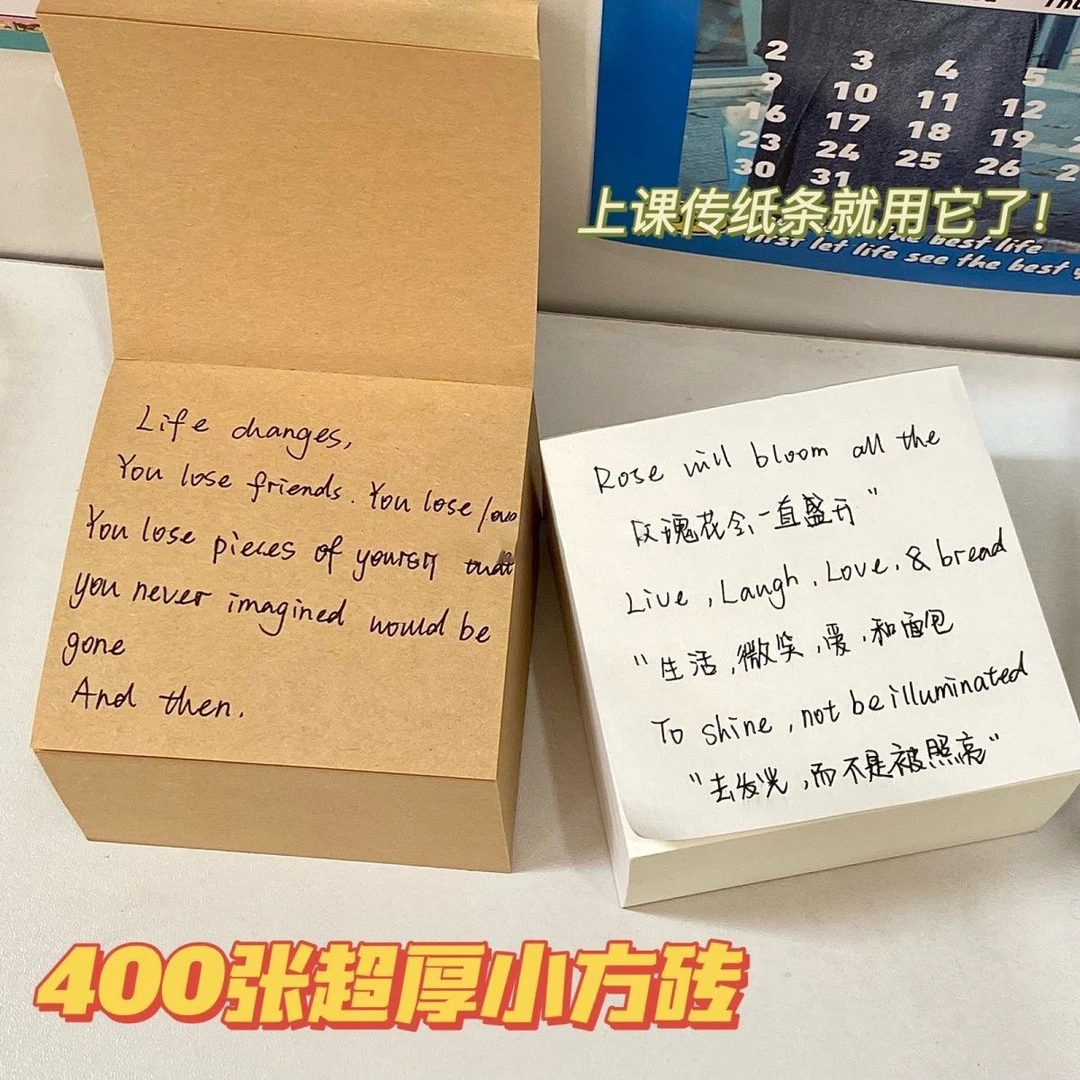 2 3 4 5
9 10 11 12
16 17 18 19 2
23 24 25 26 2
30 31
上课传纸条就用它了!
the best life
first let life see the best y
Life changes,
You lose friends. You lose love
You lose pieces of that
you never imagined would be
gone
And then.
Rose will bloom all the
玫瑰花会一直盛开"
Live, Laugh, Love, & bread
"生活,微笑,爱,和面包
To shine, not be illuminated
"去发光,而不是被照亮"
400张超厚小方砖